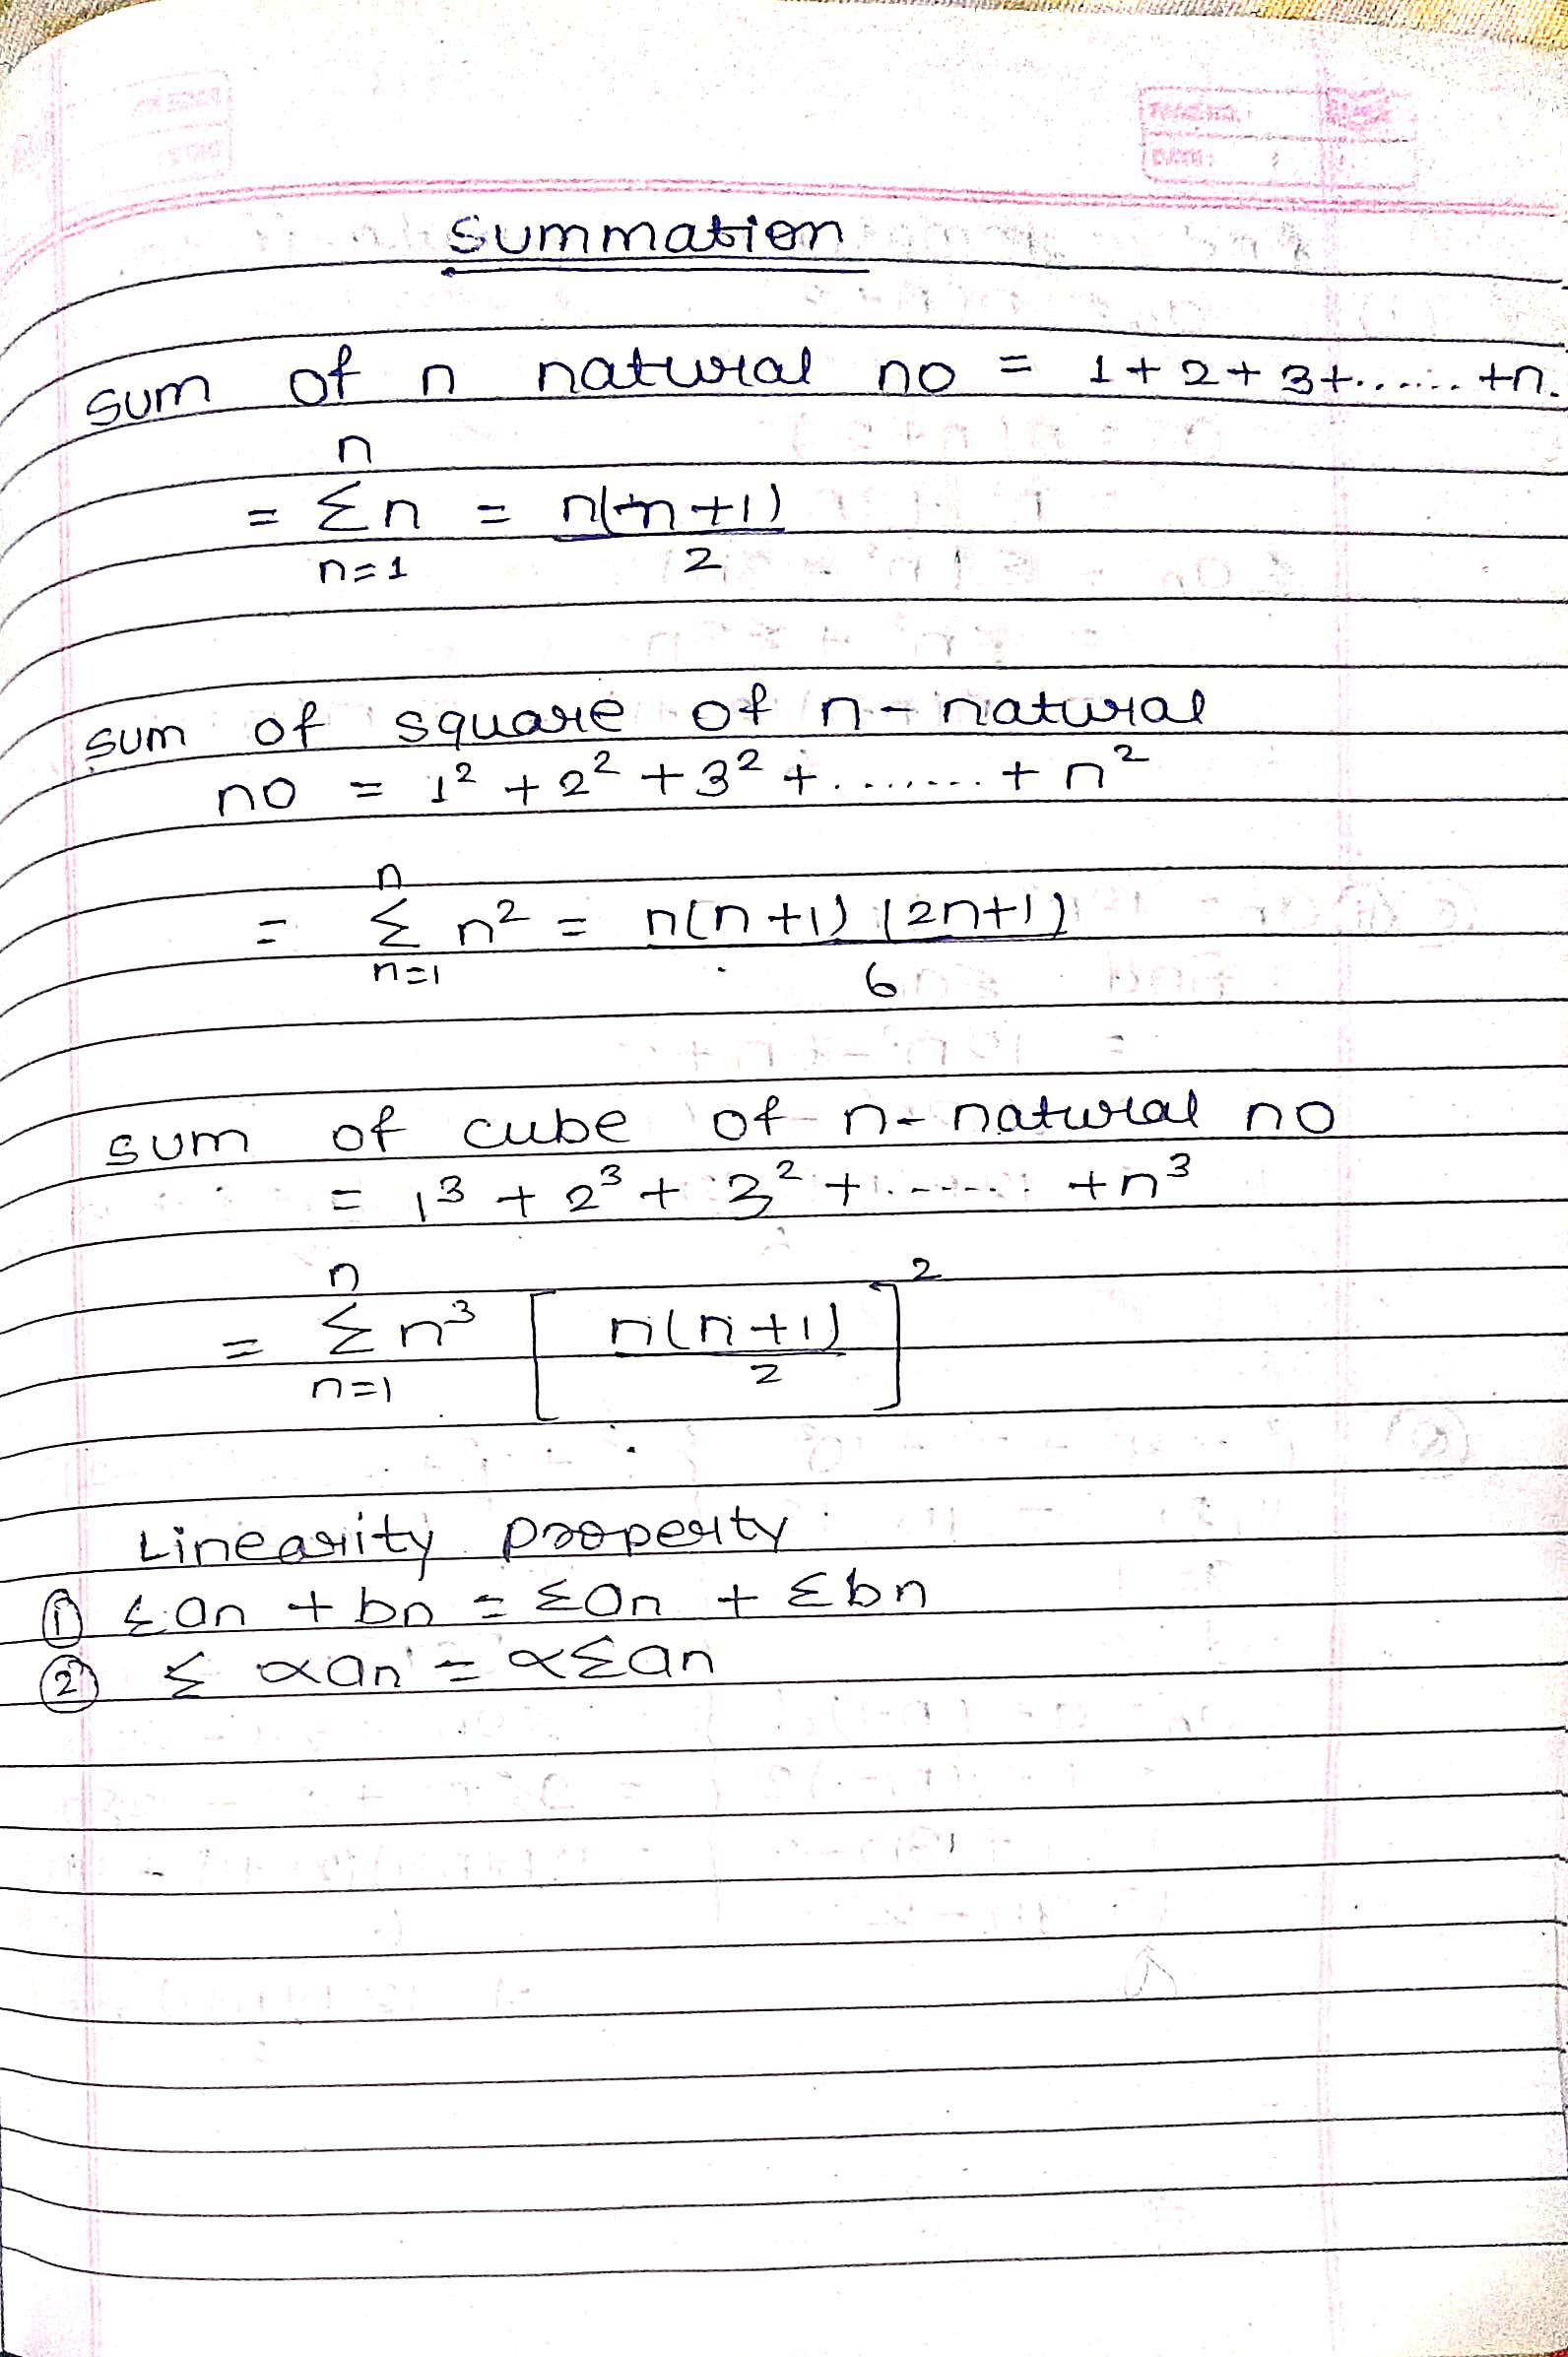 Summation
sum of n natural no = 1 + 2 + 3 + ....... + n.
n
= Σ n = n(n+1)
n=1 2
sum of square of n - natural
no = 1² + 2² + 3² + ........ + n²
n
= Σ n² = n(n+1) (2n+1)
n=1 6
sum of cube of n - natural no
= 1³ + 2³ + 3² + ....... + n³
n 2
= Σ n³ [ n(n+1) ]
n=1 2
Linearity property
① Σ an + bn = Σan + Σbn
② Σ αan = αΣan